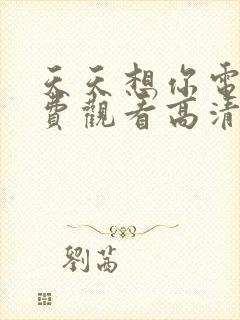 天天想你電
費觀看高清
劉茜